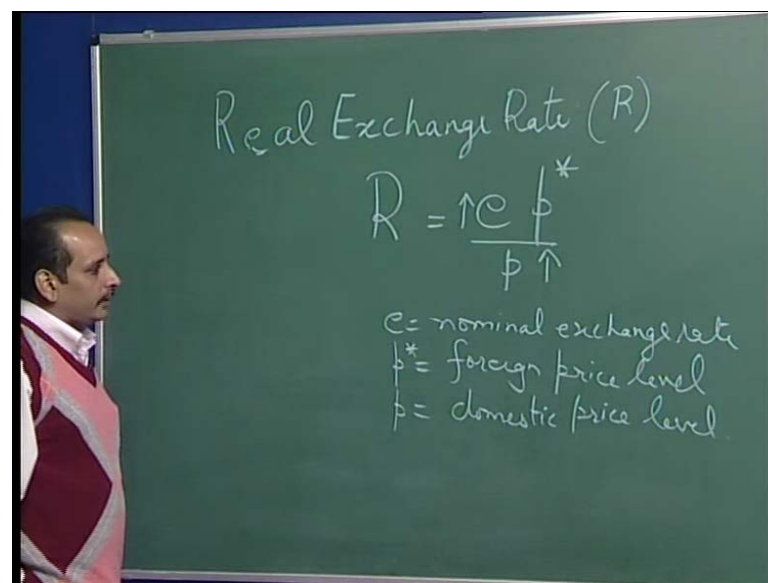 Real Exchange Rate (R)
R = ↑e p*
p ↑
e = nominal exchange rate
p* = foreign price level
p = domestic price level.